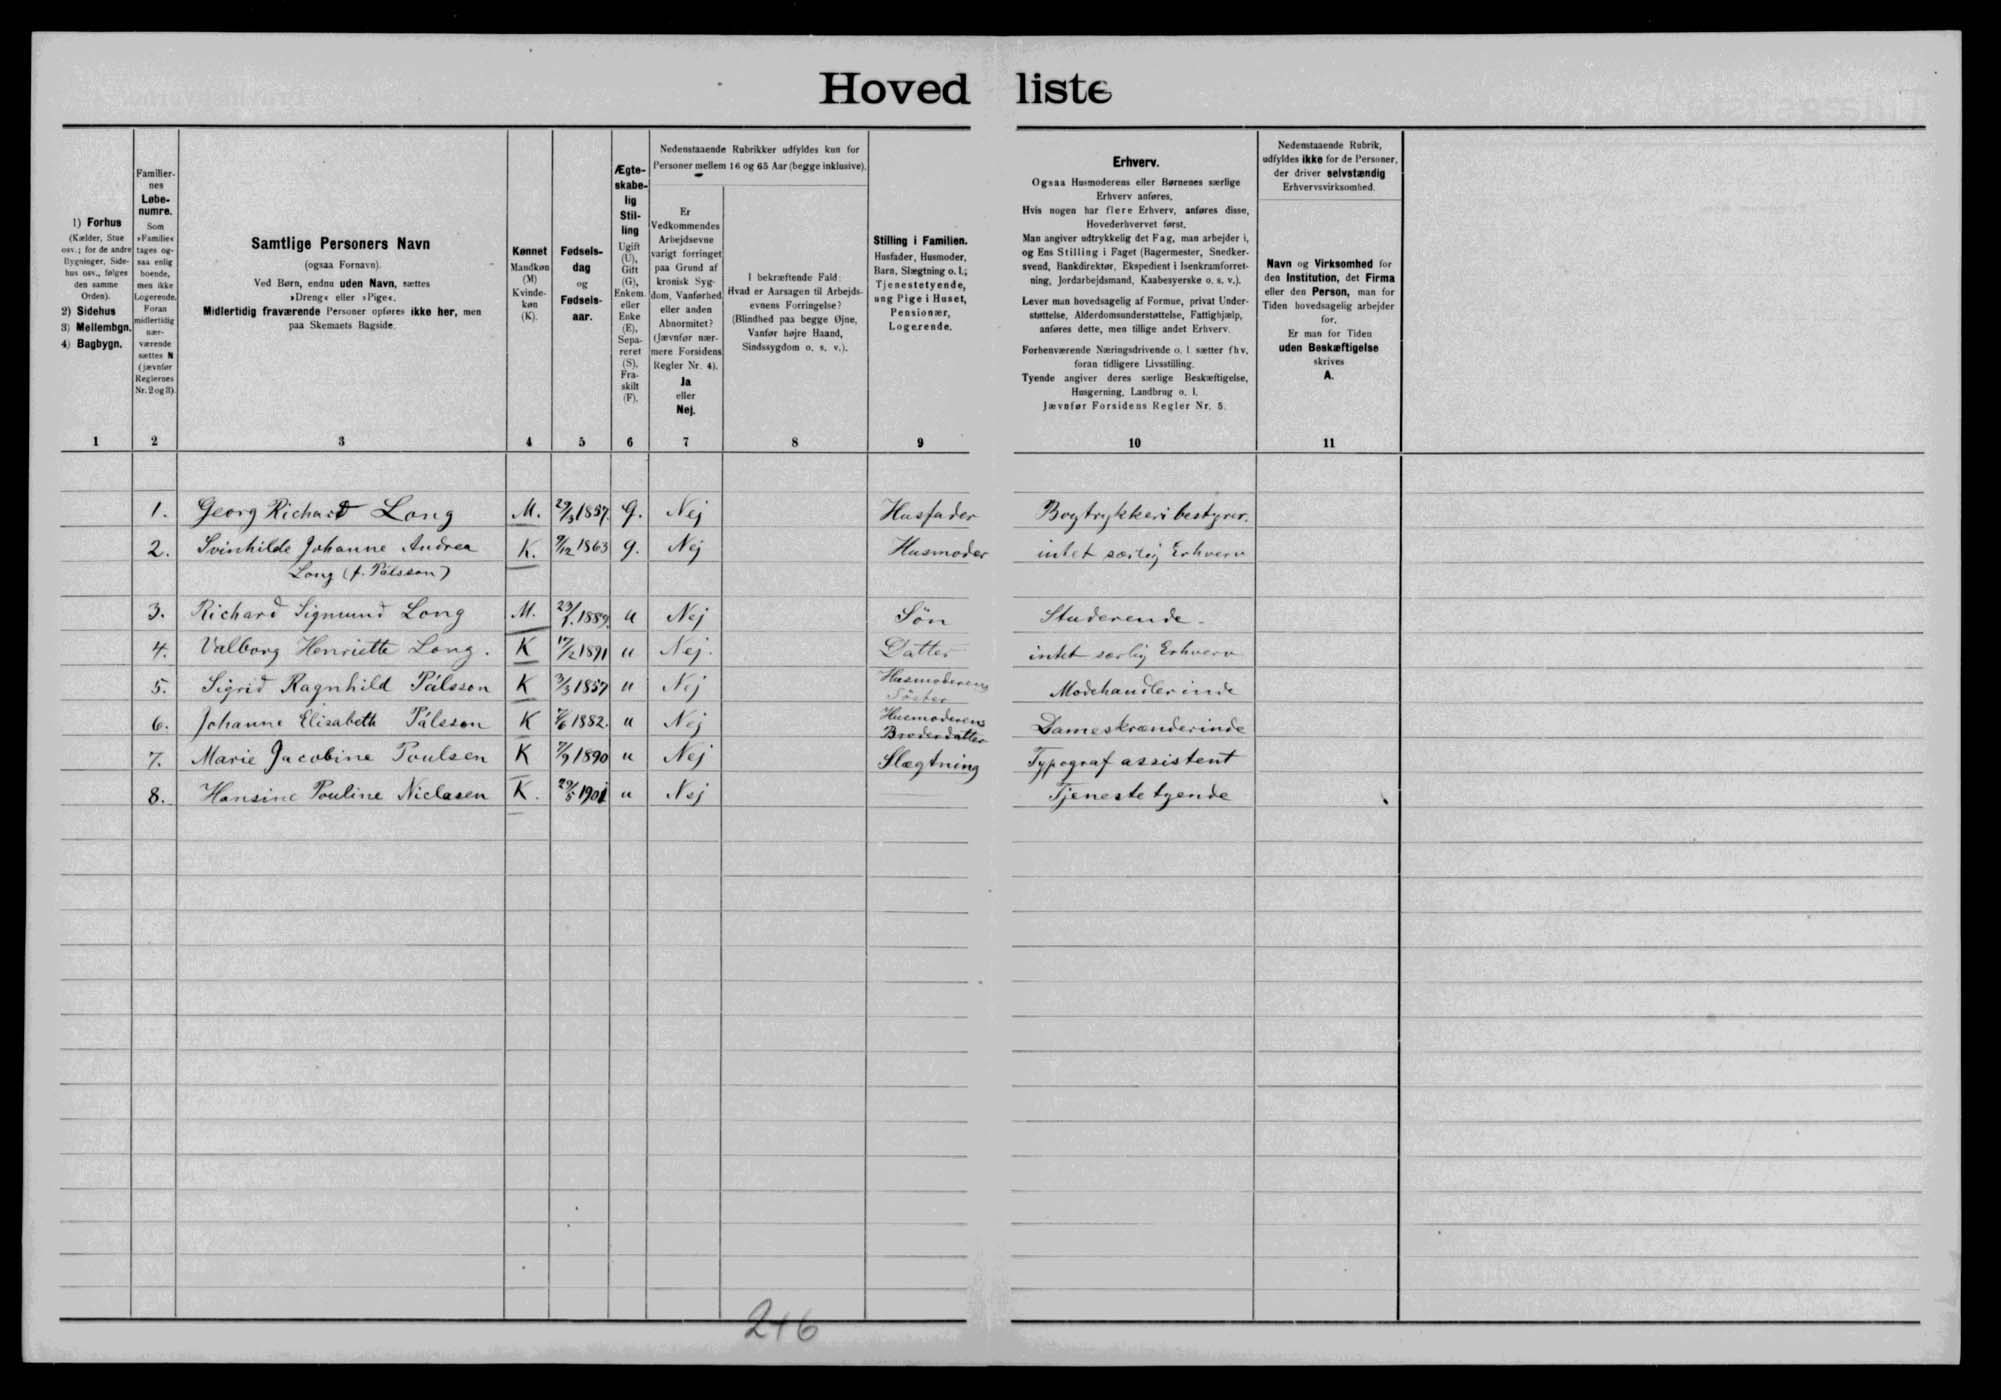 Hoved liste
1) Forhus
(Kælder, Stue
osv.; for de andre
Bygninger, Side-
hus osv., følges
den samme
Orden).
2) Sidehus
3) Mellembgn.
4) Bagbygn.
Familier-
nes
Løbe-
numre.
Som
»Familie«
tages og-
saa enlig
boende,
men ikke
Logerende.
Foran
midlertidig
nær-
værende
sættes N
(jævnfør
Reglernes
Nr. 2 og 3).
Samtlige Personers Navn
(ogsaa Fornavn).
Ved Børn, endnu uden Navn, sættes
»Dreng« eller »Pige«.
Midlertidig fraværende Personer opføres ikke her, men
paa Skemaets Bagside.
Kønnet
Mandkøn
(M)
Kvinde-
køn
(K).
Fødsels-
dag
og
Fødsels-
aar.
Ægte-
skabe-
lig
Stil-
ling
Ugift
(U),
Gift
(G),
Enkem.
eller
Enke
(E),
Sepa-
reret
(S),
Fra-
skilt
(F).
Nedenstaaende Rubrikker udfyldes kun for
Personer mellem 16 og 65 Aar (begge inklusive).
Er
Vedkommendes
Arbejdsevne
varigt forringet
paa Grund af
kronisk Syg-
dom, Vanførhed
eller anden
Abnormitet?
(Jævnfør nær-
mere Forsidens
Regler Nr. 4).
Ja
eller
Nej.
I bekræftende Fald:
Hvad er Aarsagen til Arbejds-
evnens Forringelse?
(Blindhed paa begge Øjne,
Vanfør højre Haand,
Sindssygdom o. s. v.).
Stilling i Familien.
Husfader, Husmoder,
Barn, Slægtning o. l.;
Tjenestetyende,
ung Pige i Huset,
Pensionær,
Logerende.
Erhverv.
Ogsaa Husmoderens eller Børnenes særlige
Erhverv anføres.
Hvis nogen har flere Erhverv, anføres disse,
Hovederhvervet først.
Man angiver udtrykkelig det Fag, man arbejder i,
og Ens Stilling i Faget (Bagermester, Snedker-
svend, Bankdirektør, Ekspedient i Isenkramforret-
ning, Jordarbejdsmand, Kaabesyerske o. s. v.).
Lever man hovedsagelig af Formue, privat Under-
støttelse, Alderdomsunderstøttelse, Fattighjælp,
anføres dette, men tillige andet Erhverv.
Forhenværende Næringsdrivende o. l. sætter fhv.
foran tidligere Livsstilling.
Tyende angiver deres særlige Beskæftigelse,
Husgerning, Landbrug o. l.
Jævnfør Forsidens Regler Nr. 5.
Nedenstaaende Rubrik,
udfyldes ikke for de Personer,
der driver selvstændig
Erhvervsvirksomhed.
Navn og Virksomhed for
den Institution, det Firma
eller den Person, man for
Tiden hovedsagelig arbejder
for.
Er man for Tiden
uden Beskæftigelse
skrives
A.
1 2 3 4 5 6 7 8 9 10 11
1. Georg Richard Long M. 29/3 1857. G. Nej Husfader Bogtrykkeribestyrer.
2. Svinhilde Johanne Andrea K. 9/12 1863 g. Nej Husmoder intet særlig Erhverv
Long (f. Pálsson)
3. Richard Sigmund Long M. 23/1. 1889. u Nej Søn Studerende.
4. Valborg Henriette Long. K 17/2 1891 u Nej. Datter intet særlig Erhverv
5. Sigrid Ragnhild Pálsson K 3/3 1857 u Nej Husmoderens Søster Modehandlerinde
6. Johanne Elisabeth Pálsson K 7/6 1882. u Nej Husmoderens Broderdatter Dameskrædderinde
7. Marie Jacobine Poulsen K 7/9 1890 u Nej Slægtning Typograf assistent
8. Hansine Pouline Niclasen K. 29/5 1901 u Nej Tjenestetyende
246